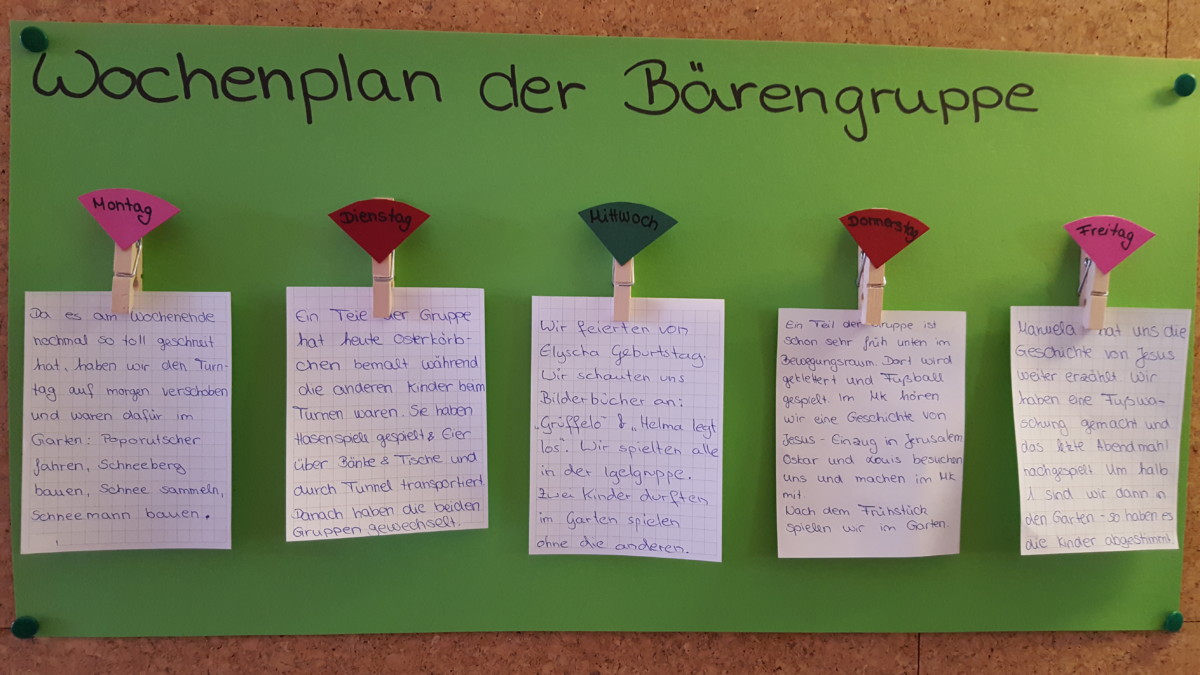 Wochenplan der Bärengruppe
Montag
Da es am Wochenende
nochmal so toll geschneit
hat, haben wir den Turn-
tag auf morgen verschoben
und waren dafür im
Garten: Poporutscher
fahren, Schneeberg
bauen, Schnee sammeln,
Schneemann bauen.
Dienstag
Ein Teil der Gruppe
hat heute Osterkörb-
chen bemalt während
die anderen Kinder beim
Turnen waren. Sie haben
Hasenspiele gespielt & Eier
über Bänke & Tische und
durch Tunnel transportiert.
Danach haben die beiden
Gruppen gewechselt.
Mittwoch
Wir feierten von
Elyscha Geburtstag.
Wir schauten uns
Bilderbücher an:
„Grüffelo" & „Helma legt
los". Wir spielten alle
in der Igelgruppe.
Zwei Kinder durften
im Garten spielen
ohne die anderen.
Donnerstag
Ein Teil der Gruppe ist
schon sehr früh unten im
Bewegungsraum. Dort wird
geklettert und Fußball
gespielt. Im Mk hören
wir eine Geschichte von
Jesus - Einzug in Jerusalem
Oskar und Louis besuchen
uns und machen im Mk
mit.
Nach dem Frühstück
spielen wir im Garten.
Freitag
Manuela hat uns die
Geschichte von Jesus
weiter erzählt. Wir
haben eine Fußwa-
schung gemacht und
das letzte Abendmahl
nachgespielt. Um halb
1 sind wir dann in
den Garten - so haben es
die Kinder abgestimmt.